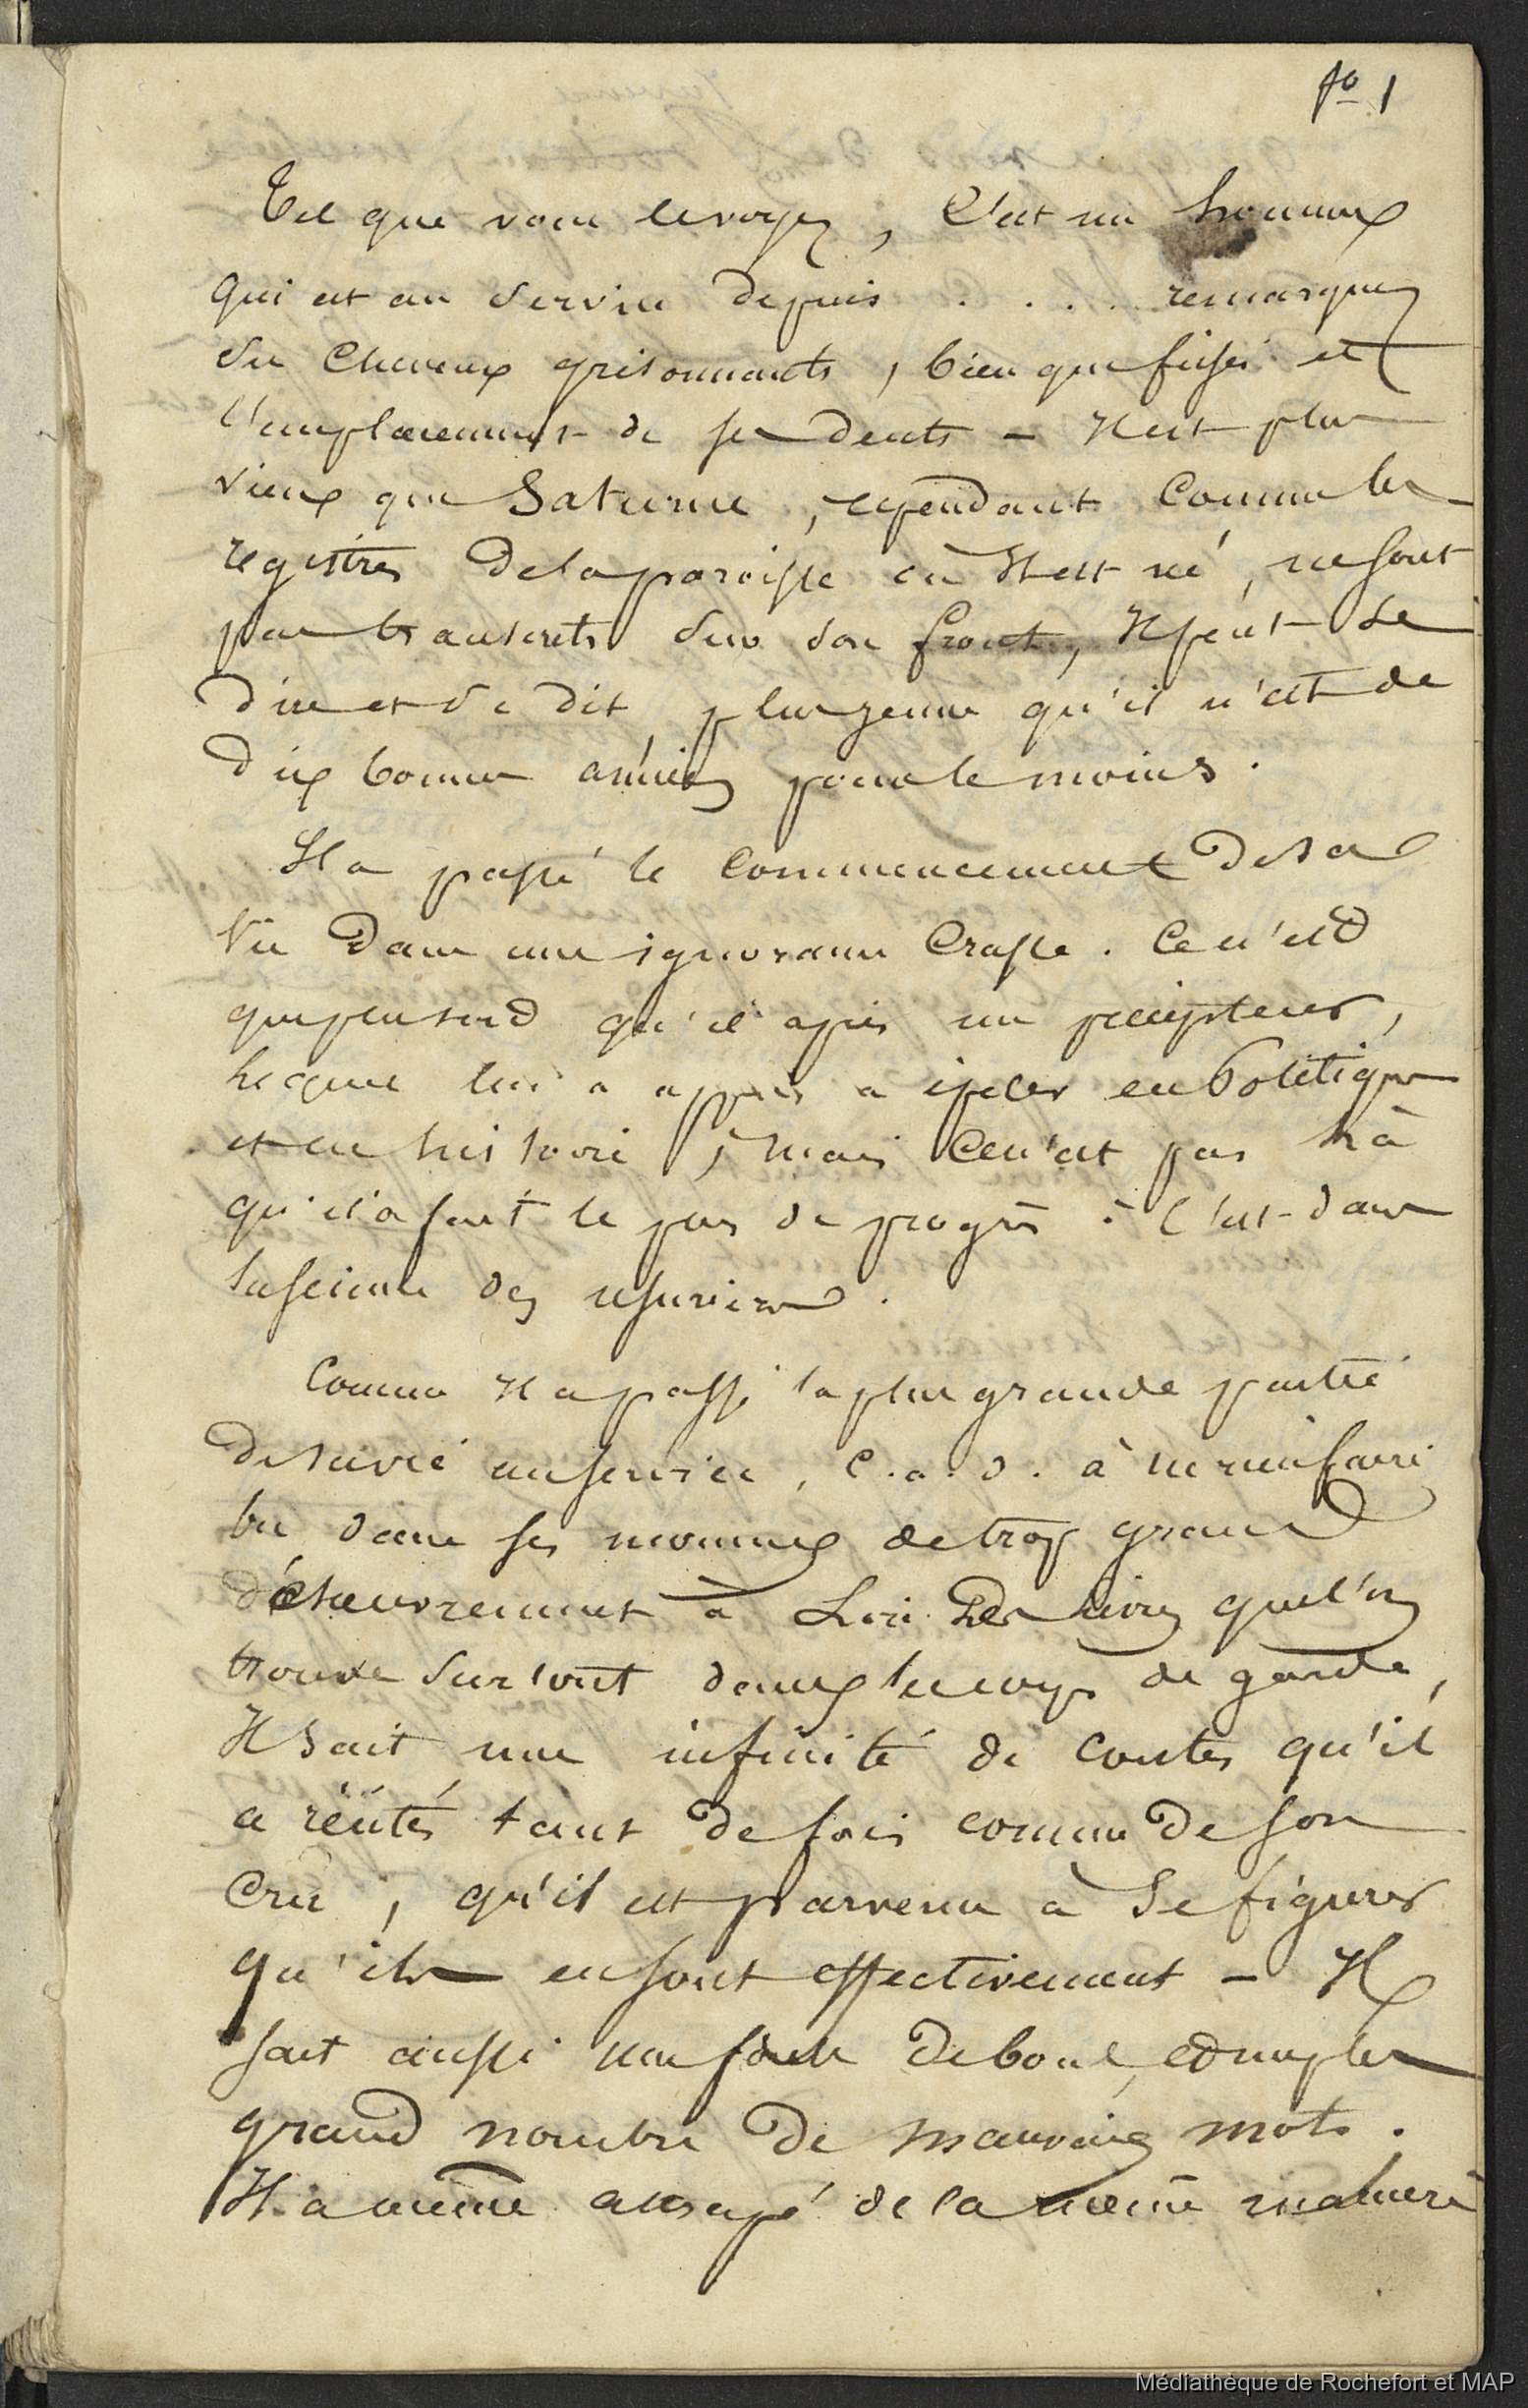 fo 1
Tel que vous le voyez, C'est un homme
qui est au Service depuis . . . . remarquez
Ses Cheveux grisonnants, bien que frisés et
l'emplacement de ses dents – Il est plus
vieux que Saturne, cependant Comme les
registres de la paroisse où Il est né, ne sont
pas transcrits sur son front, Il peut se
dire et Se dit plus jeune qu'il n'est de
dix bonnes années pour le moins.
Il a passé le Commencement de sa
Vie Dans une ignorance Crasse. Ce n'est
que plus tard qu'il a pris un précepteur,
Lequel lui a appris a épeler en Politique
et en histoire, mais Ce n'est pas Là
qu'il a fait le plus de progrès : C'est dans
la science des usuriers.
Comme Il a passé la plus grande partie
de sa vie au service, C.a.d. à ne rien faire
ou dans ses momens de trop grand
désœuvrement à Lire Des Livres que l'on
trouve Surtout dans les corps de garde,
Il Sait une infinité de Contes qu'il
a récités tant de fois comme de son
Cru, qu'il est parvenu à Se figurer
qu'ils en sont effectivement – Il
sait aussi une foule de bons, et un plus
grand nombre de mauvais mots.
Il a même essayé de la même manière
Médiathèque de Rochefort et MAP